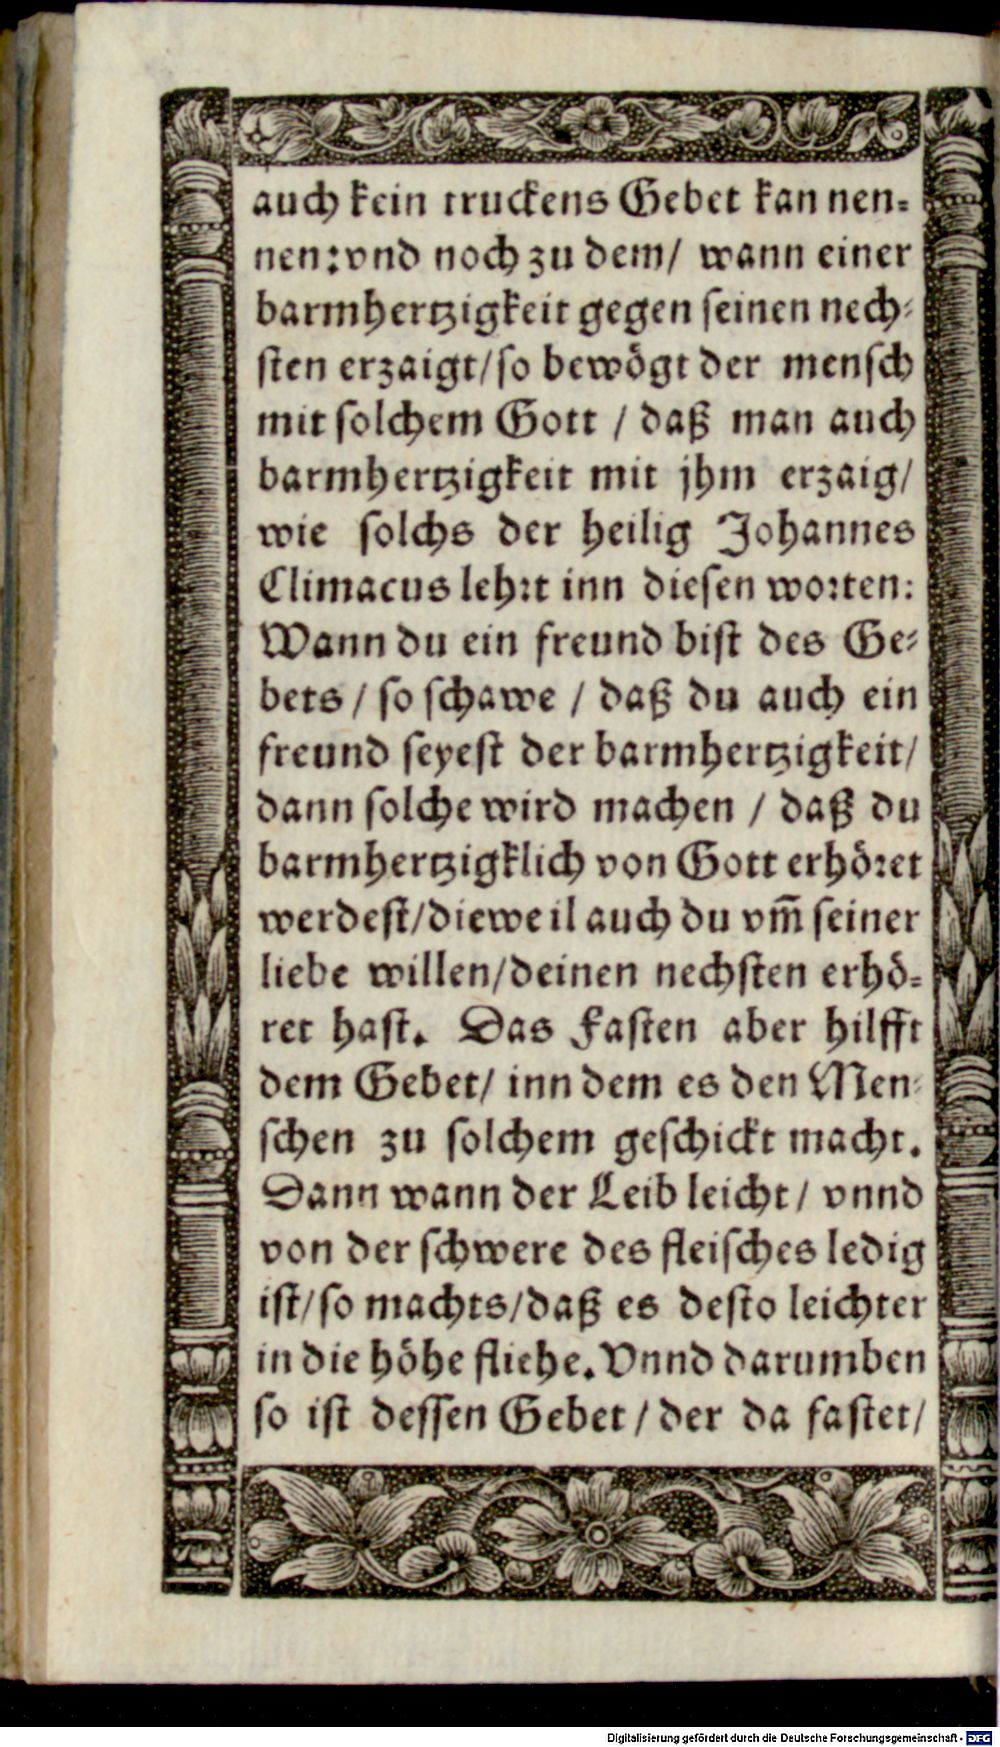 auch kein truckens Gebet kan nen-
nen: vnd noch zu dem/ wann einer
barmhertzigkeit gegen seinen nech-
sten erzaigt/so bewögt der mensch
mit solchem Gott / daß man auch
barmhertzigkeit mit jhm erzaig/
wie solchs der heilig Johannes
Climacus lehrt inn diesen worten:
Wann du ein freund bist des Ge-
bets / so schawe / daß du auch ein
freund seyest der barmhertzigkeit/
dann solche wird machen / daß du
barmhertzigklich von Gott erhöret
werdest/dieweil auch du vm̃ seiner
liebe willen/deinen nechsten erhö-
ret hast. Das Fasten aber hilfft
dem Gebet/ inn dem es den Men-
schen zu solchem geschickt macht.
Dann wann der Leib leicht/ vnnd
von der schwere des fleisches ledig
ist/so machts/daß es desto leichter
in die höhe fliehe. Vnnd darumben
so ist dessen Gebet / der da fastet/
Digitalisierung gefördert durch die Deutsche Forschungsgemeinschaft - DFG